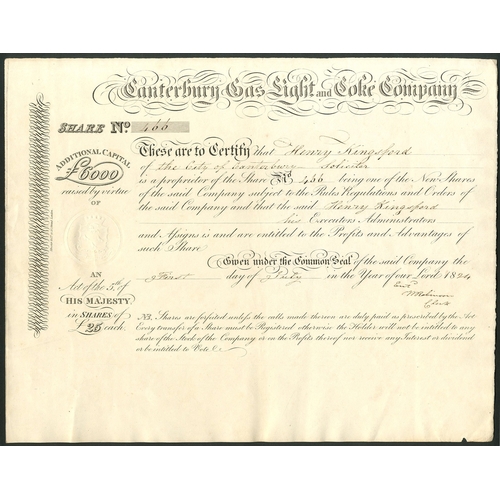 Canterbury Gas Light and Coke Company
SHARE No. 466
ADDITIONAL CAPITAL
£6000
raised by virtue
OF
AN
Act of the 3rd of
HIS MAJESTY
in SHARES of
£25 each
These are to Certify that Henry Kingsford
of the City of Canterbury Solicitor
is a proprietor of the Share No. 466 being one of the New Shares
of the said Company subject to the Rules Regulations and Orders
of the said Company and that the said Henry Kingsford
his Executors Administrators
and Assigns is and are entitled to the Profits and Advantages of
such Share
Given under the Common Seal of the said Company the
First day of July in the Year of our Lord 1824
Clerk
NB. Shares are forfeited unless the calls made thereon are duly paid as prescribed by the Act
Every transfer of a Share must be Registered otherwise the Holder will not be entitled to any
share of the Stock of the Company or in the Profits thereof nor receive any Interest or dividend
or be intitled to Vote &c